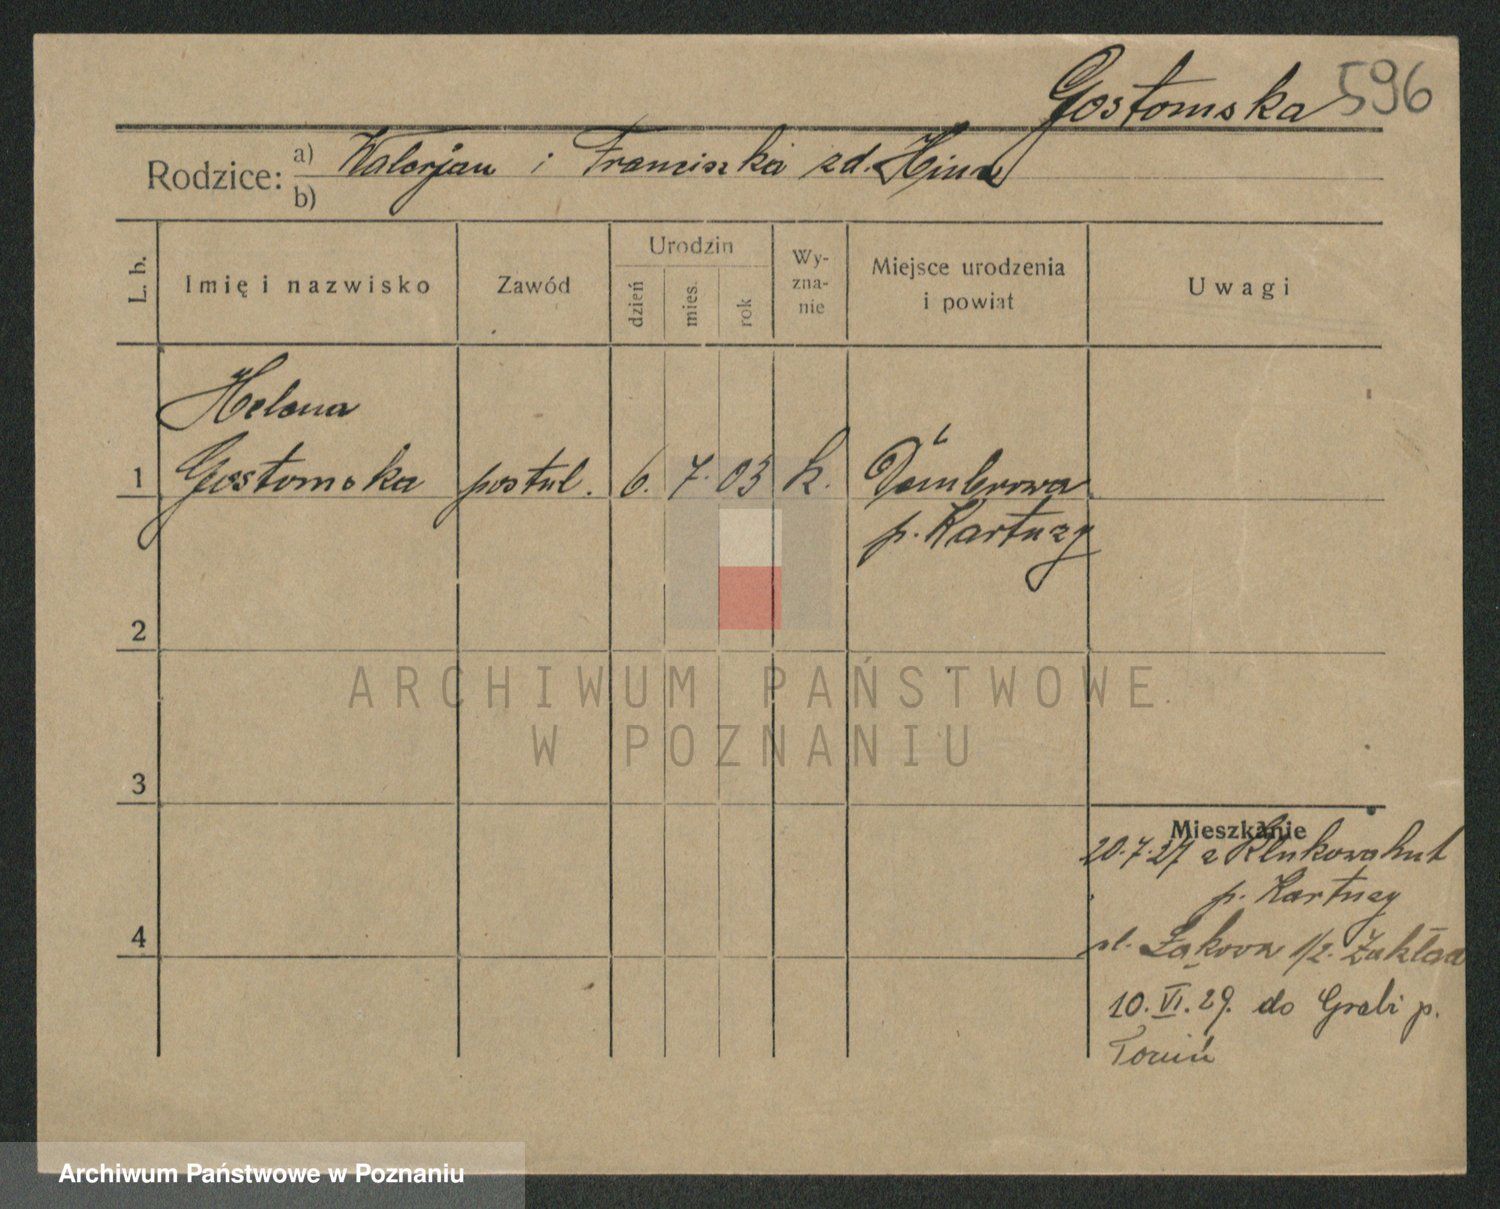 Gostomska 596
Rodzice: a) Walerjan i Franciszka zd. Hinz
b)
L. b. Imię i nazwisko Zawód Urodzin dzień mies. rok Wy-zna-nie Miejsce urodzenia i powiat Uwagi
Helena
1 Gostomska postul. 6. 7. 03 k. Dąmbrowa
p. Kartuzy
2
ARCHIWUM PAŃSTWOWE
W POZNANIU
3
Mieszkanie
20.7.27 z Klukowahut
p. Kartuzy
pl. Łąkowa 1/2. Zakład
4
10.VI.29. do Grabi p.
Toruń
Archiwum Państwowe w Poznaniu